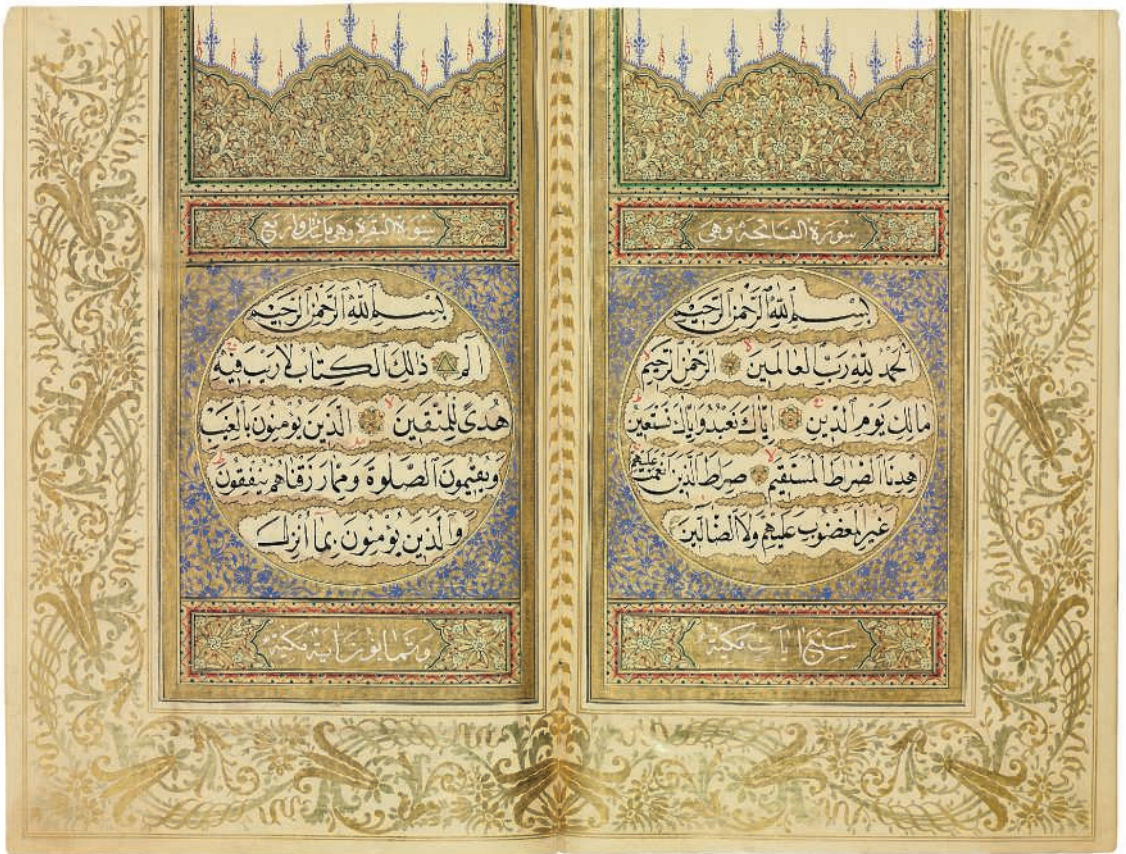 سورة الفاتحة وهى
بسم الله الرحمن الرحيم
الحمد لله رب العالمين الرحمن الرحيم
مالك يوم الدين اياك نعبد واياك نستعين
هدنا الصراط المستقيم صراط الذين انعمت عليهم
غير المغضوب عليهم ولا الضالين
سبع ايات مكية
سورة البقرة وهى مائتان واربع
بسم الله الرحمن الرحيم
الم ذلك الكتاب لا ريب فيه
هدى للمتقين الذين يؤمنون بالغيب
ويقيمون الصلوة ومما رزقناهم ينفقون
والذين يؤمنون بما انزل
وثمانون اية مكية